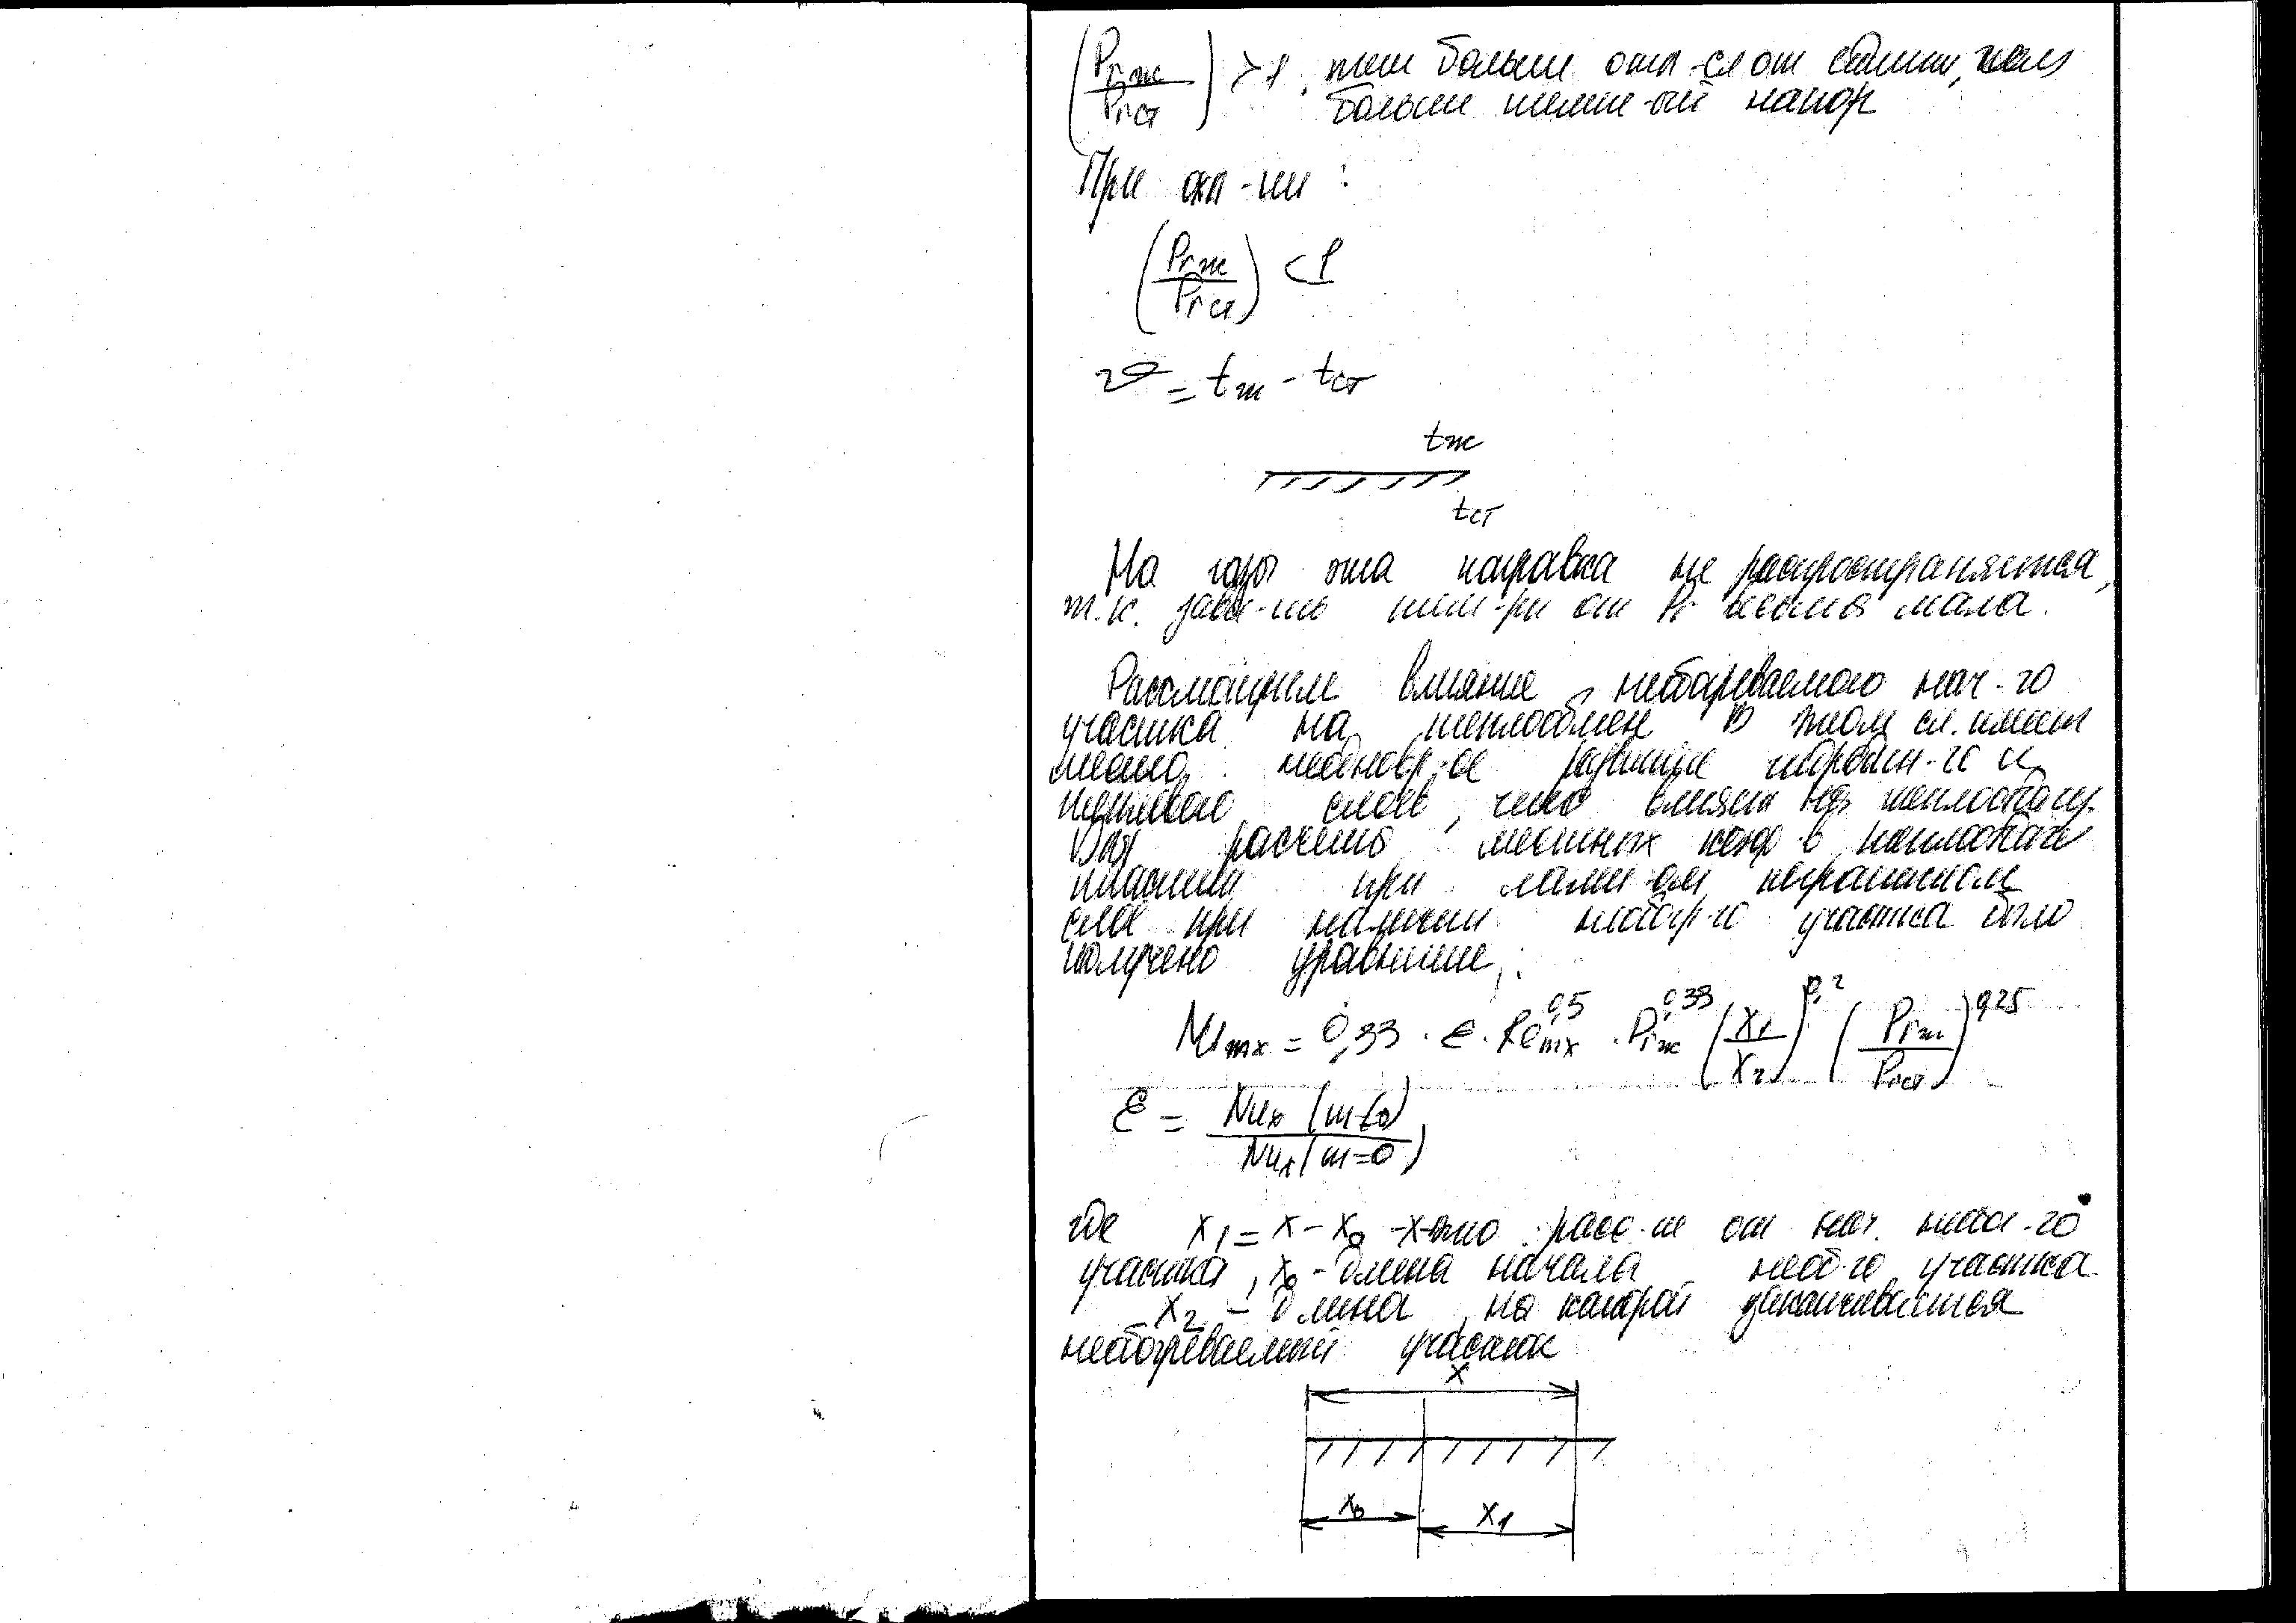 (Prж/Prст) > 1, тем больше отл-ся от единицы, чем
больше темп-ый напор
При охл-ии :
(Prж/Prст) < 1
ϑ = tж - tст
tж
tст
На газы эта поправка не распространяется,
т.к. зав-ть тем-ры от Pr весьма мала.
Рассмотрим влияние необогреваемого нач-го
участка на теплообмен. В этом сл. имеет
место развитие гидродин-го и
теплового слоёв, что влияет на теплоотдачу.
Для расчета местных коэф-в теплоотдачи
пластины при ламин-ом пограничном
слое при наличии необогр-го участка было
получено уравнение:
Nuжx = 0,33 · ε · Reжx^0,5 · Prж^0,33 (x1/x2)^0,2 (Prж/Prст)^0,25
ε = Nux (m≠0) / Nux (m=0)
где x1 = x - x0 - расс-ие от нач.
участка, x0 - длина начала необ-го участка
x2 - длина, на которой заканчивается
необогреваемый участок
x
x0 x1